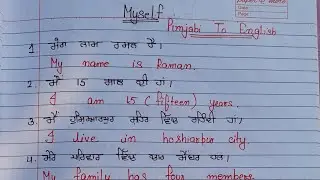 Myself
Punjabi To English
1. ਮੇਰਾ ਨਾਮ ਰਮਨ ਹੈ।
My name is Raman.
2. ਮੈਂ 15 ਸਾਲ ਦੀ ਹਾਂ।
I am 15 (fifteen) years.
3. ਮੈਂ ਹੁਸ਼ਿਆਰਪੁਰ ਸ਼ਹਿਰ ਵਿੱਚ ਰਹਿੰਦੀ ਹਾਂ।
I live in hoshiarpur city.
4. ਮੇਰੇ ਪਰਿਵਾਰ ਵਿੱਚ ਚਾਰ ਮੈਂਬਰ ਹਨ।
My family has four members.